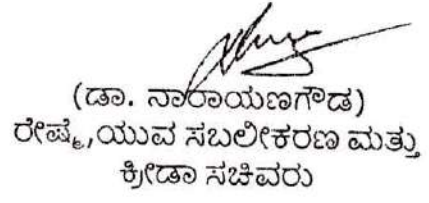 (ಡಾ. ನಾರಾಯಣಗೌಡ)
ರೇಷ್ಮೆ,ಯುವ ಸಬಲೀಕರಣ ಮತ್ತು
ಕ್ರೀಡಾ ಸಚಿವರು